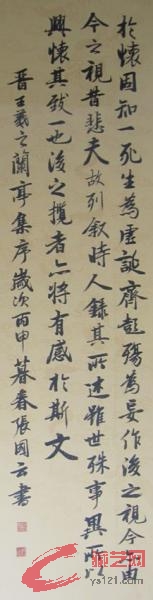 於懷固知一死生為虛誕齊彭殤為妄作後之視今亦由
今之視昔悲夫故列叙時人錄其所述雖世殊事異所以
興懷其致一也後之攬者亦將有感於斯文
晋王羲之蘭亭集序歲次丙申暮春張國云書
ys121.com